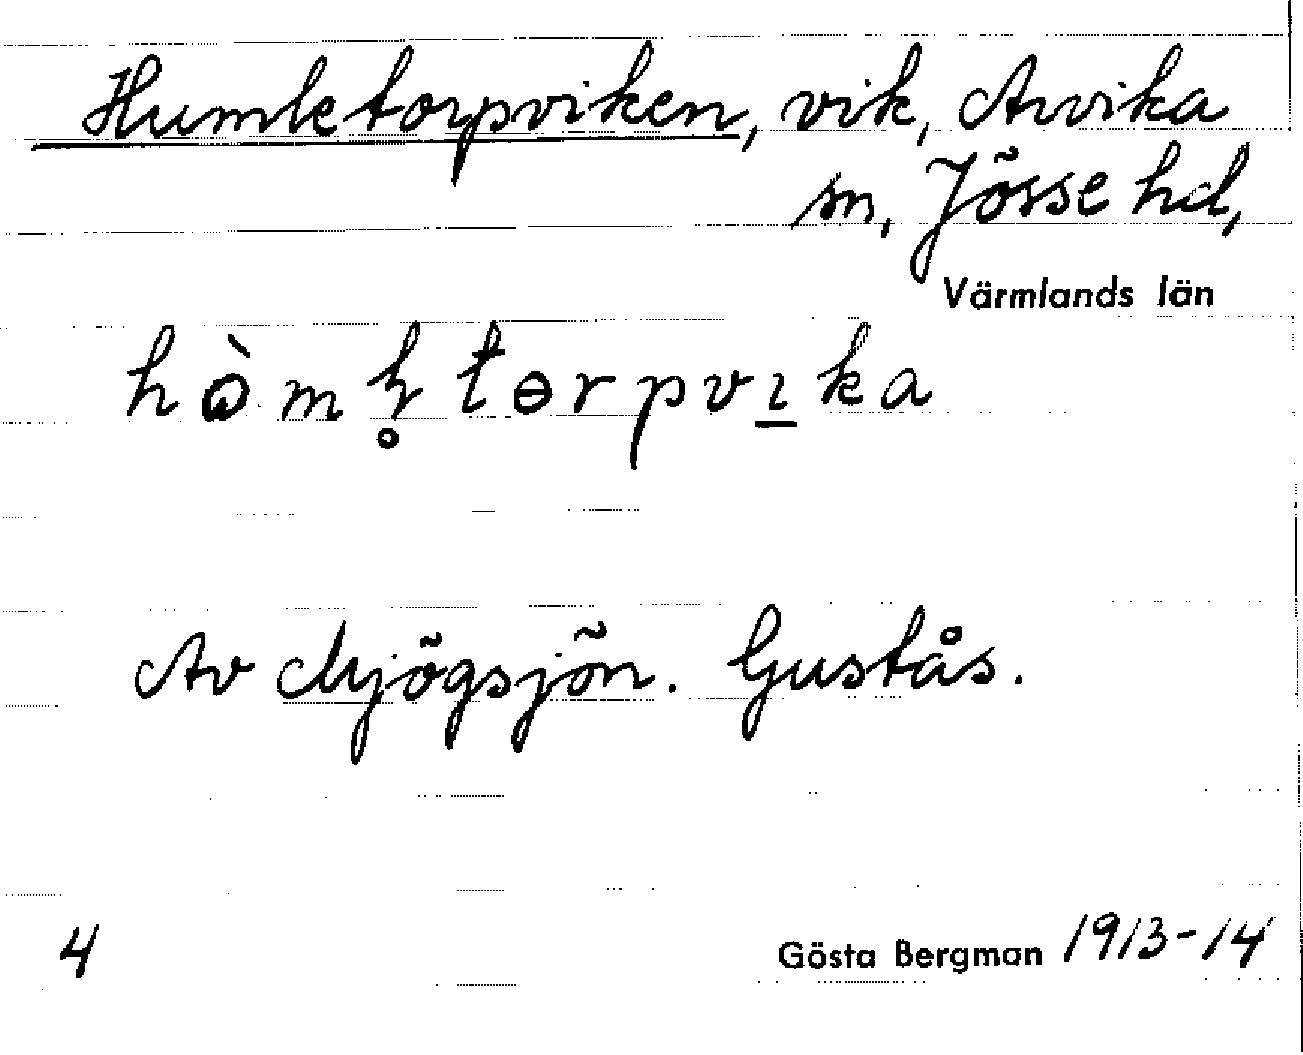 Humletorpviken, vik, Arvika
sn, Jösse hd,
Värmlands län
Av Mjögsjön. Gustås.
4
Gösta Bergman 1913-14